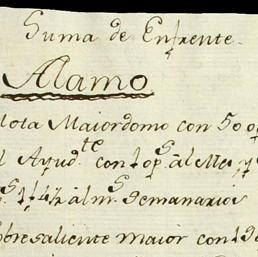 Suma de Enfrente
Alamo
Maiordomo con 50
Ayud.te con 1 op.s al Mes y
al m.s Semanarios
bresaliente Maior con